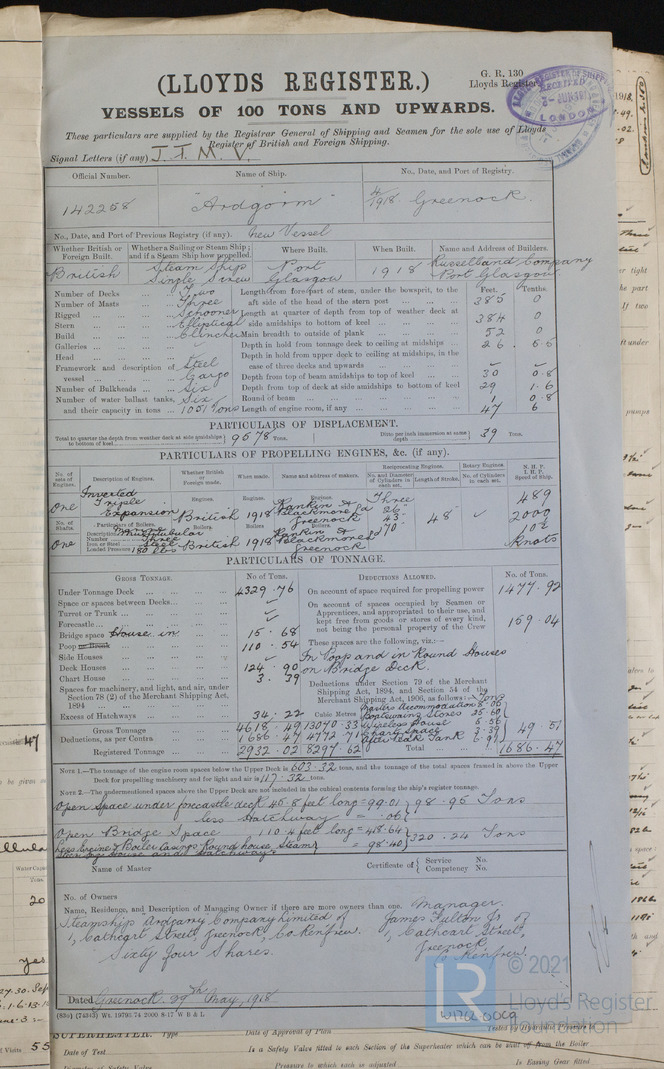 G. R. 130
Lloyds Register
(LLOYDS REGISTER.)
VESSELS OF 100 TONS AND UPWARDS.
These particulars are supplied by the Registrar General of Shipping and Seamen for the sole use of Lloyds
Register of British and Foreign Shipping.
Signal Letters (if any) J. T. M. V.
RECEIVED
LONDON
Official Number. Name of Ship. No., Date, and Port of Registry.
142258 "Ardgorm" 4/1918. Greenock.
No., Date, and Port of Previous Registry (if any). New Vessel
Whether British or Foreign Built. Whether a Sailing or Steam Ship; and if a Steam Ship how propelled. Where Built. When Built. Name and Address of Builders.
British Steam Ship Single Screw Port Glasgow 1918 Russell and Company Port Glasgow
Feet. Tenths.
Number of Decks Two
Number of Masts Three
Rigged Schooner
Stern Elliptical
Build Clincher
Galleries
Head
Framework and description of vessel Steel Cargo
Number of Bulkheads Six
Number of water ballast tanks, and their capacity in tons Six 1051 Tons
Length from forepart of stem, under the bowsprit, to the aft side of the head of the stern post 385 0
Length at quarter of depth from top of weather deck at side amidships to bottom of keel 384 0
Main breadth to outside of plank 52 0
Depth in hold from tonnage deck to ceiling at midships 26
Depth in hold from upper deck to ceiling at midships, in the case of three decks and upwards
Depth from top of beam amidships to top of keel 30 0.8
Depth from top of deck at side amidships to bottom of keel 29 1.6
Round of beam 1 0.8
Length of engine room, if any 47 6
PARTICULARS OF DISPLACEMENT.
Total to quarter the depth from weather deck at side amidships to bottom of keel 9578 Tons. Ditto per inch immersion at same depth 39 Tons.
PARTICULARS OF PROPELLING ENGINES, &c. (if any).
No. of sets of Engines. Description of Engines. Whether British or Foreign made. When made. Name and address of makers. Reciprocating Engines. No. and Diameter of Cylinders in each set. Length of Stroke. Rotary Engines. No. of Cylinders in each set. N. H. P. I. H. P. Speed of Ship.
One Inverted Triple Expansion British 1918 Rankin & Blackmore Ld Greenock Three 26" 43" 70" 48" 489 2000 10½ knots
No. of Shafts. Particulars of Boilers.
One Description Multitubular
Number Three
Iron or Steel Steel
Loaded Pressure 180 lbs British 1918 Rankin & Blackmore Ld Greenock
PARTICULARS OF TONNAGE.
GROSS TONNAGE. No. of Tons.
Under Tonnage Deck 4329.76
Space or spaces between Decks
Turret or Trunk
Forecastle
Bridge space House in 15.68
Poop or Break 110.54
Side Houses
Deck Houses 124.90
Chart House 3.39
Spaces for machinery, and light, and air, under Section 78 (2) of the Merchant Shipping Act, 1894
Excess of Hatchways 34.22
Cubic Metres
Gross Tonnage 4618.49 13070.33
Deductions, as per Contra 1686.47 4772.71
Registered Tonnage 2932.02 8297.62
DEDUCTIONS ALLOWED. No. of Tons.
On account of space required for propelling power 1477.92
On account of spaces occupied by Seamen or Apprentices, and appropriated to their use, and kept free from goods or stores of every kind, not being the personal property of the Crew 159.04
These spaces are the following, viz.:—
In Poop and in Round Houses on Bridge Deck.
Deductions under Section 79 of the Merchant Shipping Act, 1894, and Section 54 of the Merchant Shipping Act, 1906, as follows:— Tons
Master Accommodation 8.06
Boatswains Stores 25.60
Wireless House 5.56
Chart Space 3.39
After Peak Tank 6.91
49.51
Total 1686.47
NOTE 1.—The tonnage of the engine room spaces below the Upper Deck is 603.32 tons, and the tonnage of the total spaces framed in above the Upper
Deck for propelling machinery and for light and air is 117.32 tons.
NOTE 2.—The undermentioned spaces above the Upper Deck are not included in the cubical contents forming the ship's register tonnage.
Open Space under forecastle deck 45.8 feet long = 99.01
less Hatchway = .06
98.95 Tons
Open Bridge Space 110.4 feet long = 418.64
Less Engine & Boiler Casings Round house Steam Steering House and Hatchways = 98.40
320.24 Tons
Name of Master Certificate of { Service No. Competency No.
No. of Owners
Name, Residence, and Description of Managing Owner if there are more owners than one. Manager.
Steamship Ardgarry Company Limited of James Fulton Jr. of
1, Cathcart Street, Greenock, Co Renfrew. 1, Cathcart Street,
Sixty Four Shares. Greenock
Co. Renfrew.
Dated Greenock 29th May, 1918
(830) (74313) Wt. 19790.74 2000 8-17 W B & L
W1762-0009
© 2021
LR
Lloyd's Register
Foundation
SUPERHEATER. Type Date of Approval of Plan Tested by Hydraulic Pressure to
Date of Test Is a Safety Valve fitted to each Section of the Superheater which can be shut off from the Boiler
Pressure to which each is adjusted Is Easing Gear fitted